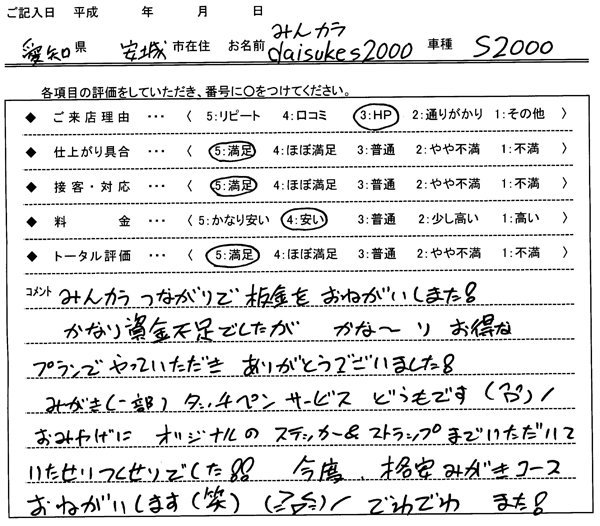 ご記入日 平成 年 月 日
みんカラ
愛知県 安城市在住 お名前 daisukes2000 車種 S2000
各項目の評価をしていただき、番号に○をつけてください。
◆ ご来店理由 ・・・ 〈 5:リピート 4:口コミ 3:HP 2:通りがかり 1:その他 〉
◆ 仕上がり具合 ・・・ 〈 5:満足 4:ほぼ満足 3:普通 2:やや不満 1:不満 〉
◆ 接客・対応 ・・・ 〈 5:満足 4:ほぼ満足 3:普通 2:やや不満 1:不満 〉
◆ 料金 ・・・ 〈 5:かなり安い 4:安い 3:普通 2:少し高い 1:高い 〉
◆ トータル評価 ・・・ 〈 5:満足 4:ほぼ満足 3:普通 2:やや不満 1:不満 〉
コメント みんカラつながりで板金をおねがいしました!
かなり資金不足でしたが かな〜り お得な
プランでやっていただき ありがとうございました!
みがき(一部) タッチペン サービス どうもです
おみやげに オリジナルの ステッカー&ストラップまでいただいて
いたせりつくせりでした!! 今度、格安みがきコース
おねがいします(笑) でわでわ また!